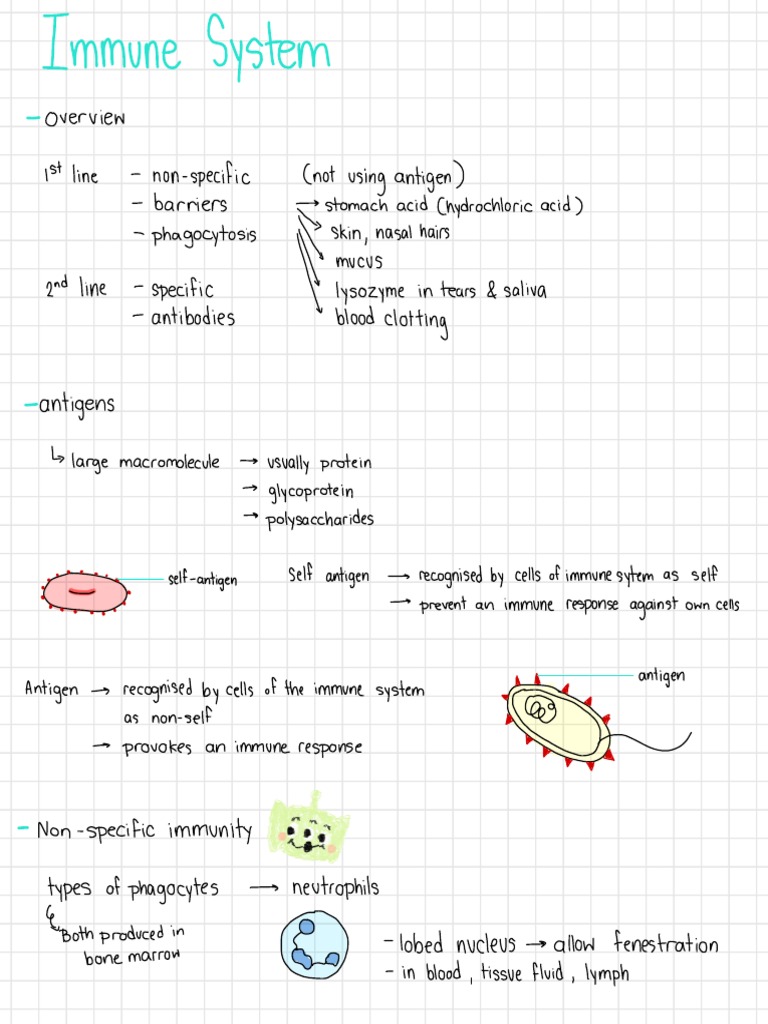 Immune System
- overview
1st line - non-specific (not using antigen)
- barriers → stomach acid (hydrochloric acid)
- phagocytosis skin, nasal hairs
mucus
2nd line - specific lysozyme in tears & saliva
- antibodies blood clotting
- antigens
↳ large macromolecule → usually protein
→ glycoprotein
→ polysaccharides
self-antigen
Self antigen → recognised by cells of immune sytem as self
→ prevent an immune response against own cells
Antigen → recognised by cells of the immune system
as non-self
→ provokes an immune response
antigen
- Non-specific immunity
types of phagocytes → neutrophils
↳ Both produced in
bone marrow
- lobed nucleus → allow fenestration
- in blood, tissue fluid, lymph